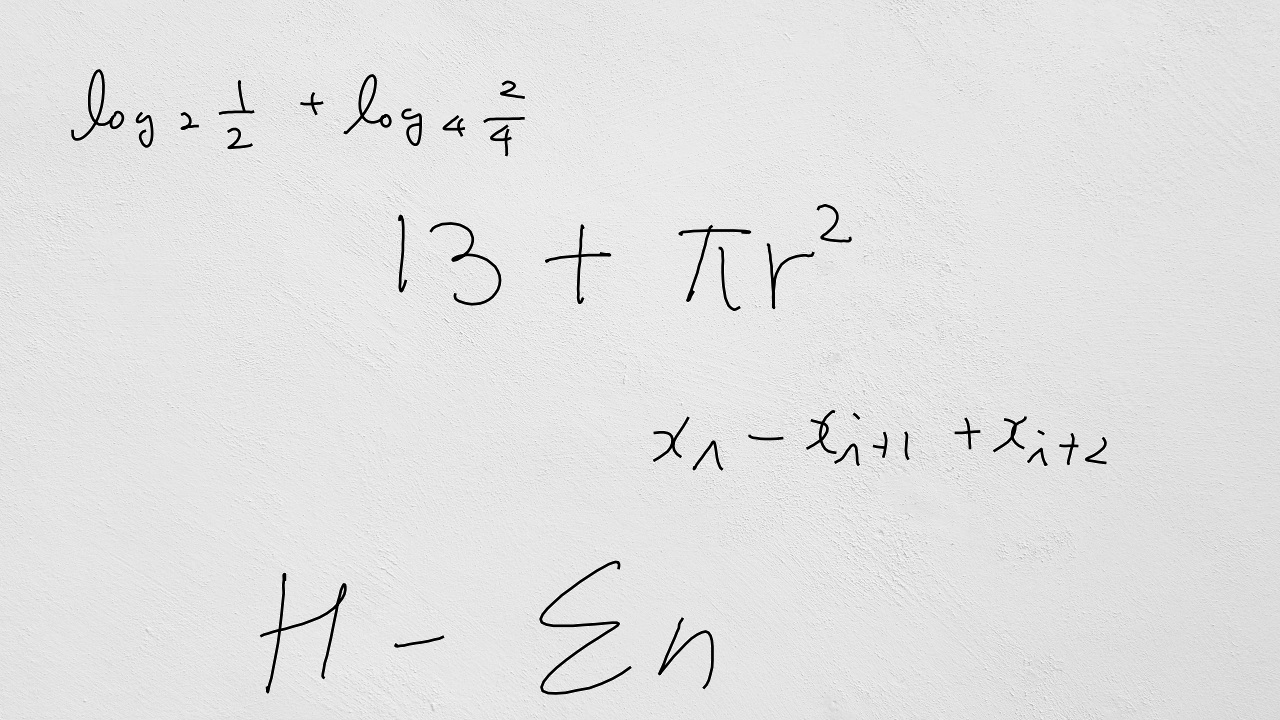 log₂ 1/2 + log₄ 2/4
13 + πr²
xᵢ − xᵢ₊₁ + xᵢ₊₂
H − Σn